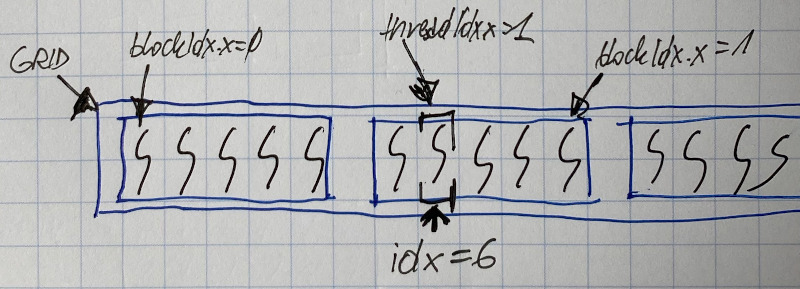 GRID
blockIdx.x=0
threadIdx.x=1
blockIdx.x=1
idx=6